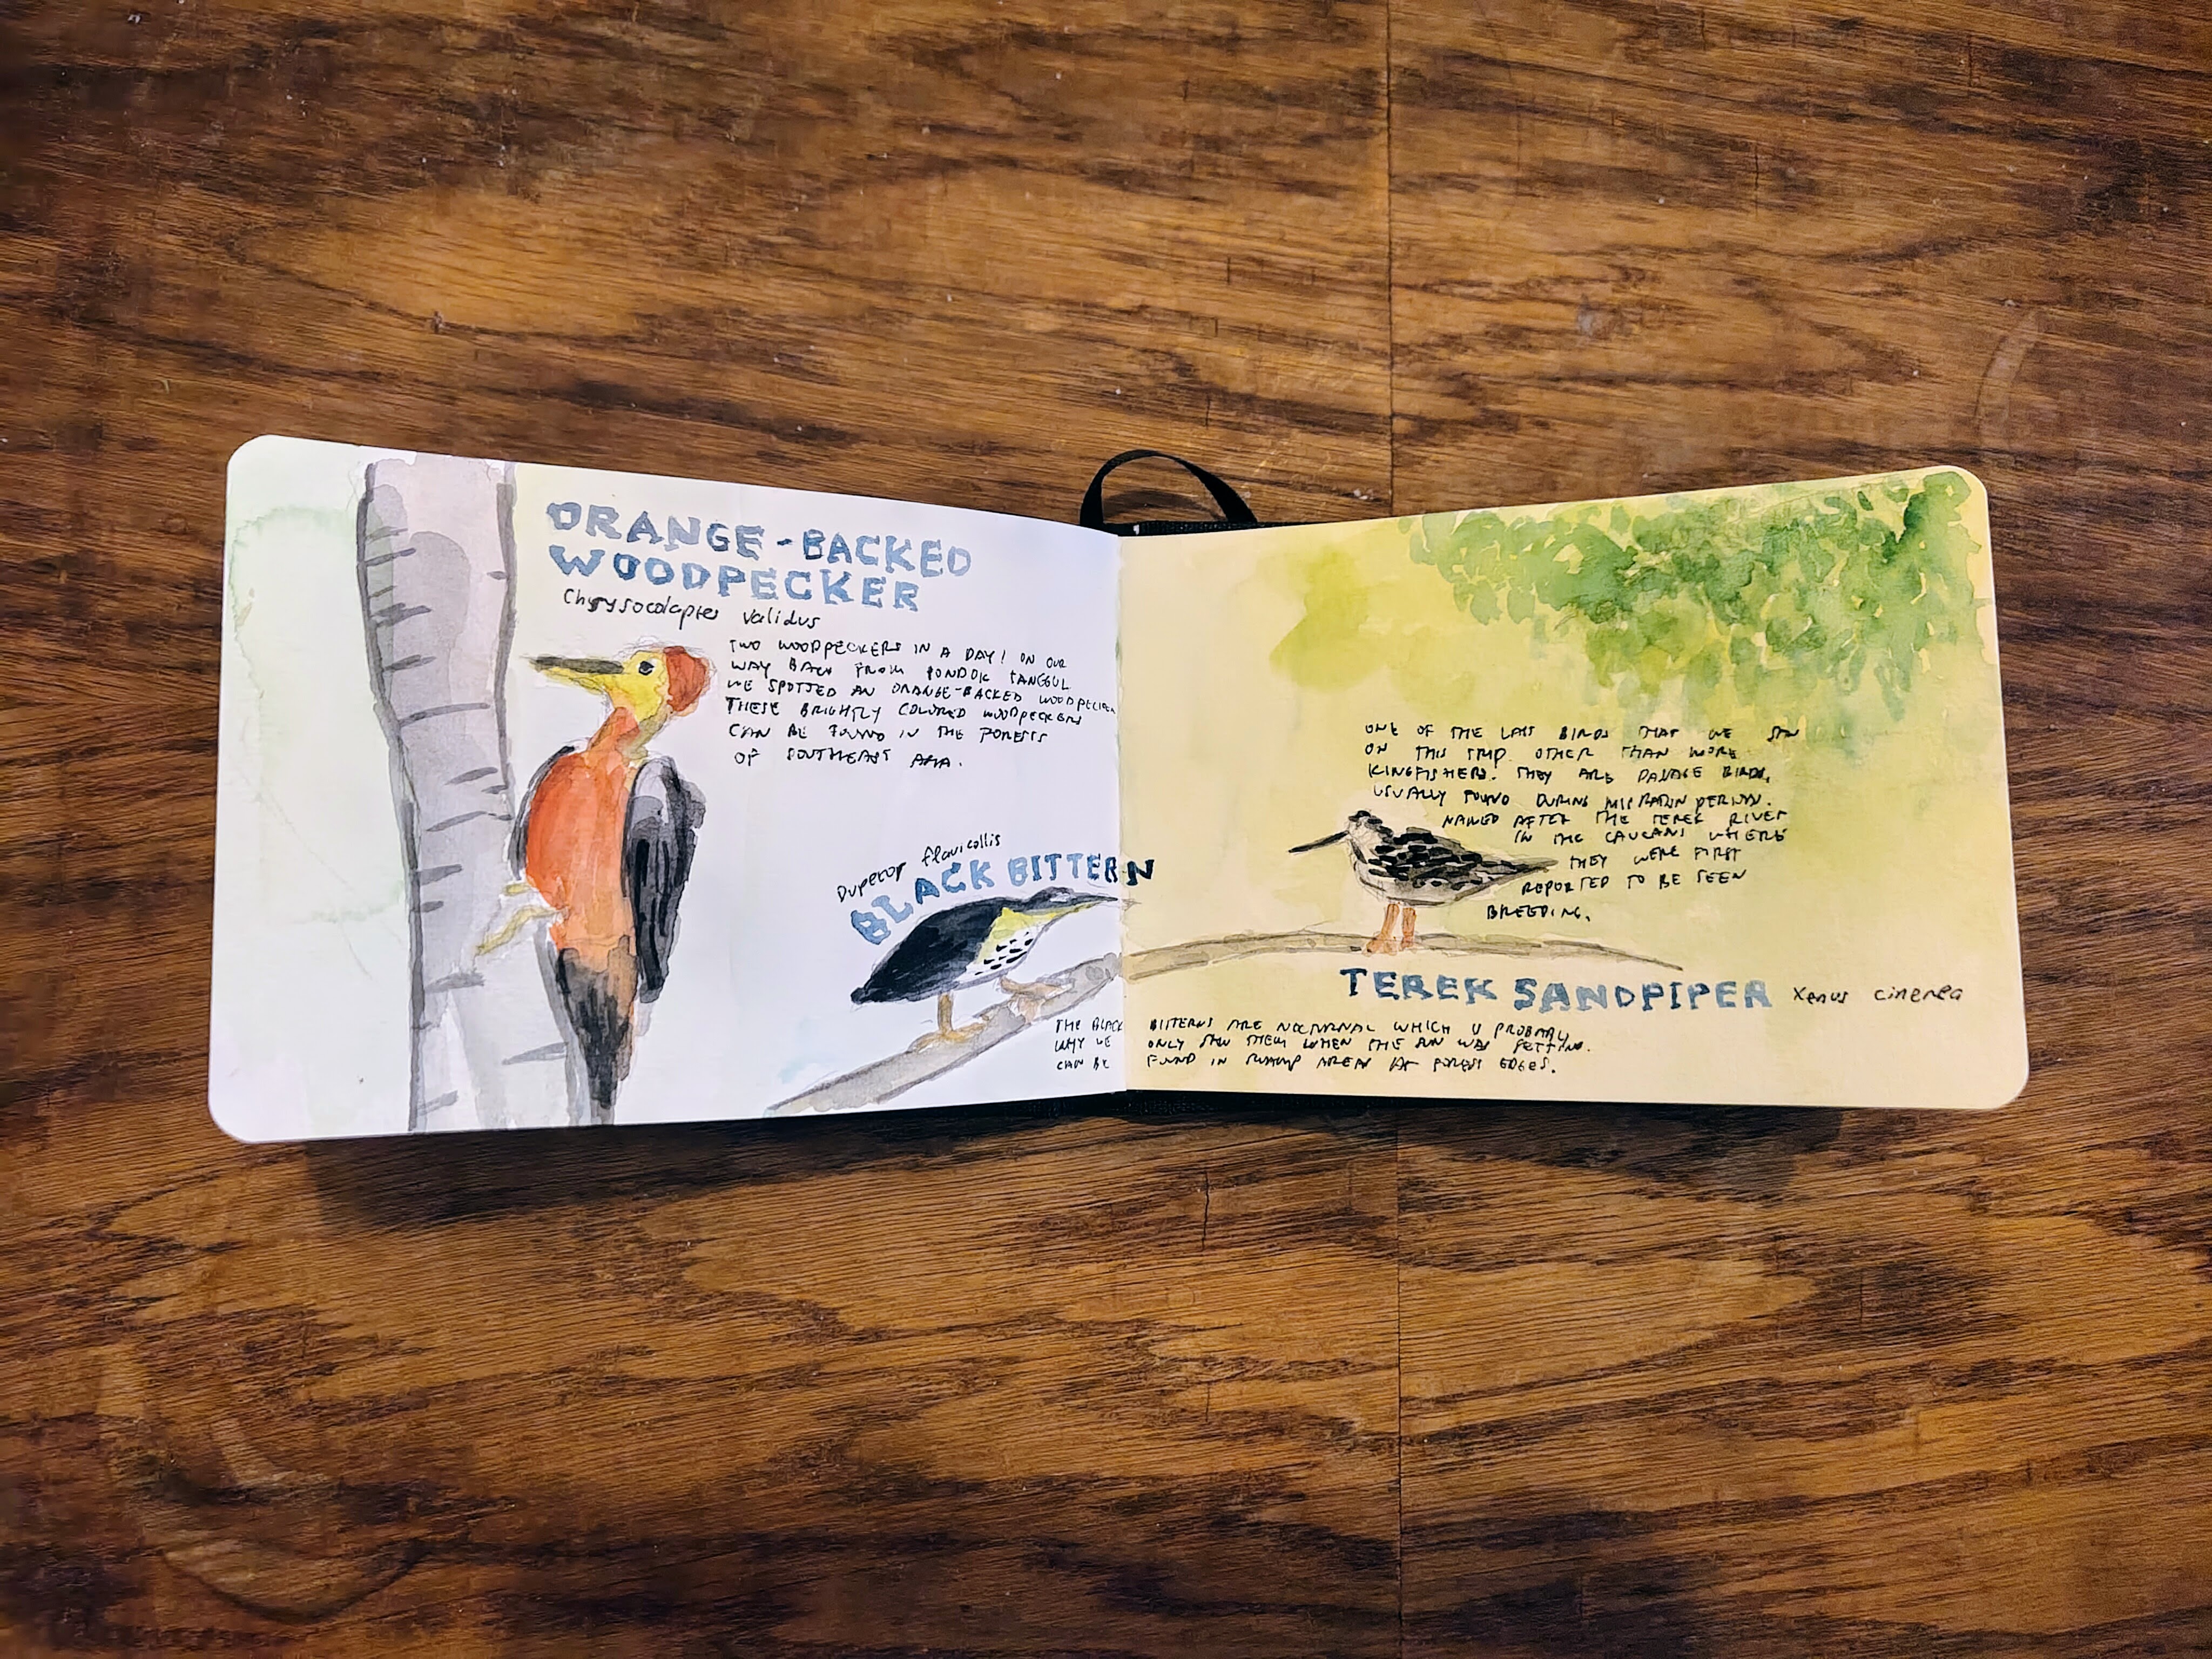 ORANGE-BACKED
WOODPECKER
Chrysocolaptes validus
TWO WOODPECKERS IN A DAY! ON OUR
WAY BACK FROM PONDOK TANGGUL
WE SPOTTED AN ORANGE-BACKED WOODPECKER
THESE BRIGHTLY COLORED WOODPECKERS
CAN BE FOUND IN THE FORESTS
OF SOUTHEAST ASIA.
Dupetor flavicollis
BLACK BITTERN
THE BLACK BITTERNS ARE NOCTURNAL WHICH IS PROBABLY
WHY WE ONLY SAW THEM WHEN THE SUN WAS SETTING.
CAN BE FOUND IN SWAMP AREAS AT FOREST EDGES.
ONE OF THE LAST BIRDS THAT WE SAW
ON THIS TRIP OTHER THAN MORE
KINGFISHERS. THEY ARE PASSAGE BIRDS,
USUALLY FOUND DURING MIGRATION
NAMED AFTER THE TEREK RIVER
IN THE WHERE
THEY WERE FIRST
REPORTED TO BE SEEN
BREEDING.
TEREK SANDPIPER
Xenus cinerea